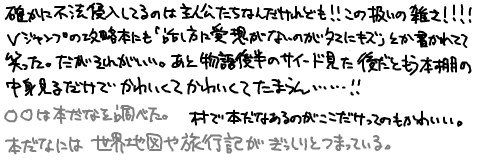 確かに不法侵入してるのは主人公たちなんだけれども!!この扱いの雑さ!!!!
Vジャンプの攻略本にも「話し方に愛想がないのがタマにキズ」とか書かれてて
笑った。だがそれがいい。あと物語後半のサイド見た後だともう本棚の
中身見るだけでかわいくてかわいくてたまらん……!!
○○は本だなを調べた。 村で本だなあるのがここだけってのもかわいい。
本だなには 世界地図や旅行記が ぎっしりとつまっている。